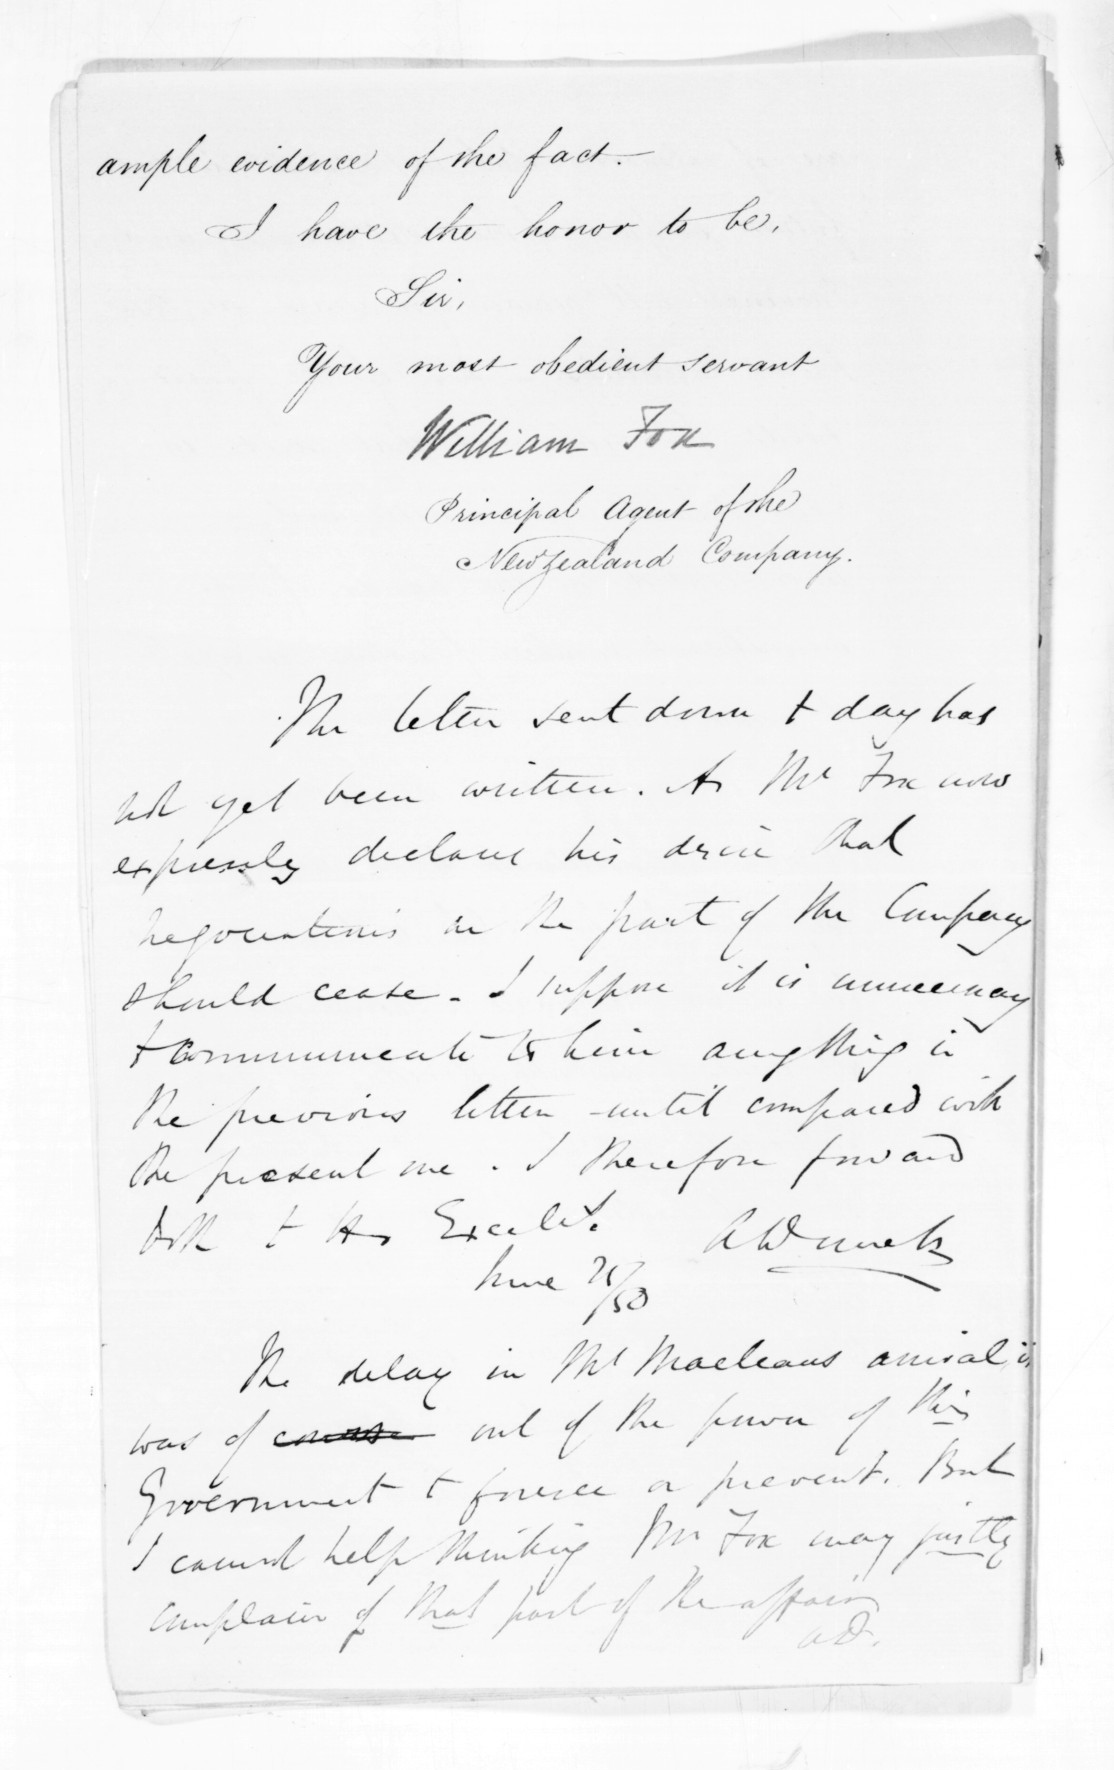 ample evidence of the fact.—
I have the honor to be,
Sir,
Your most obedient servant
William Fox
Principal Agent of the
New Zealand Company.
The letter sent down to day has
not yet been written. As Mr Fox now
expressly declares his desire that
negociations on the part of the Company
should cease. I suppose it is unnecessary
to communicate to him anything in
the previous letter until compared with
the present one. I therefore forward
both to His Excelly.
A Domett
June 25/50
The delay in Mr Macleans arrival
was of course out of the power of this
Government to foresee or prevent. But
I cannot help thinking Mr Fox may justly
complain of that part of the affair
AD.